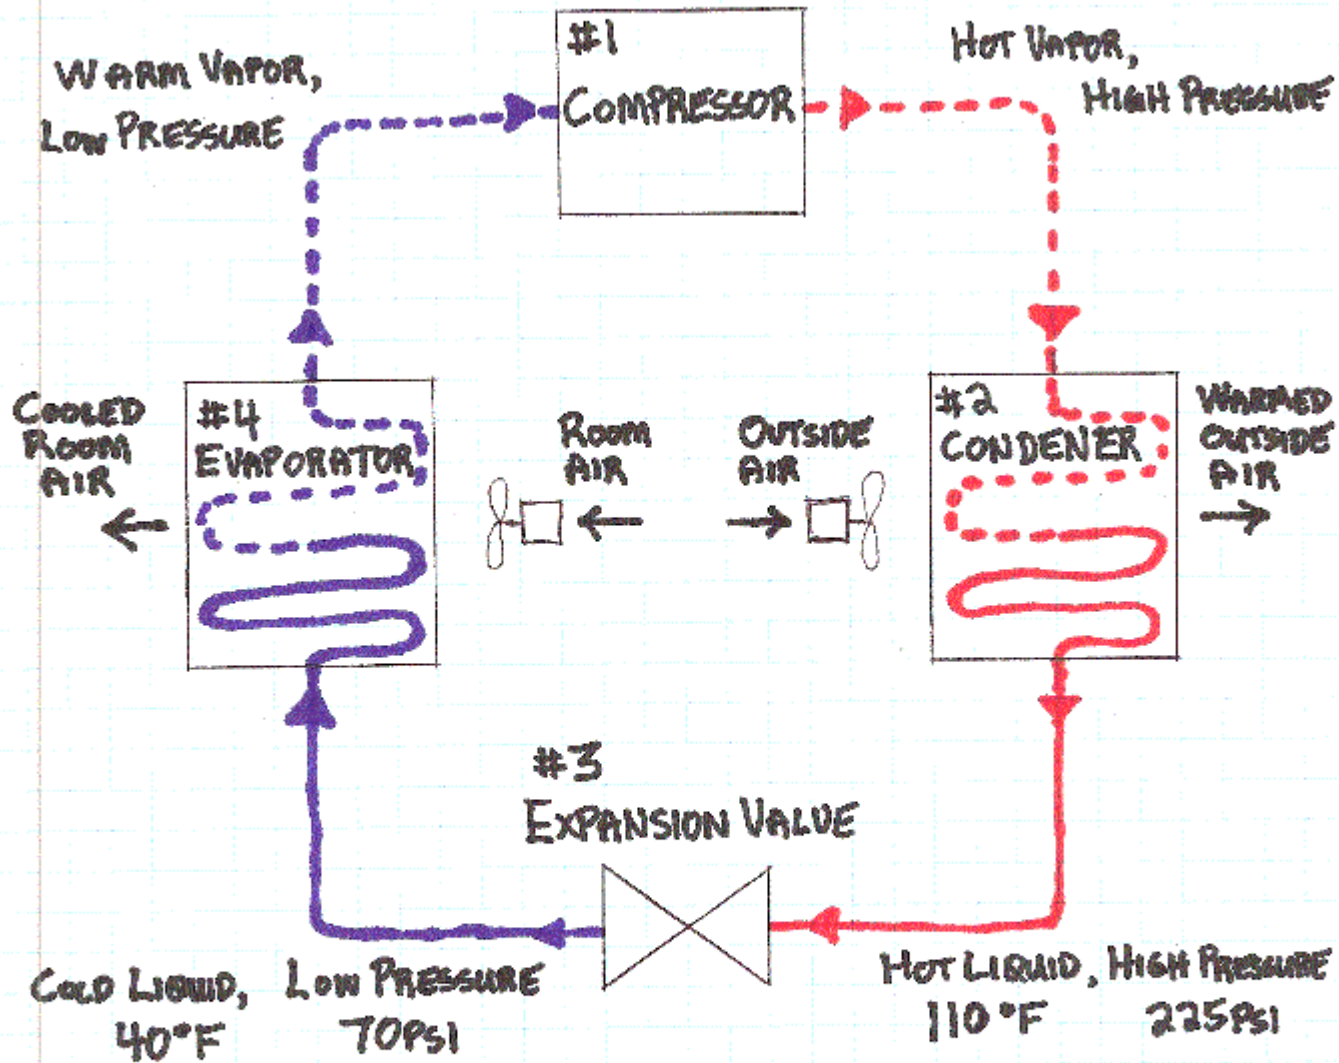 #1
COMPRESSOR
HOT VAPOR,
HIGH PRESSURE
WARM VAPOR,
LOW PRESSURE
COOLED
ROOM
AIR
#4
EVAPORATOR
ROOM
AIR
OUTSIDE
AIR
#2
CONDENER
WARMED
OUTSIDE
AIR
#3
EXPANSION VALUE
COLD LIQUID, LOW PRESSURE
40°F 70PSI
HOT LIQUID, HIGH PRESSURE
110°F 225PSI